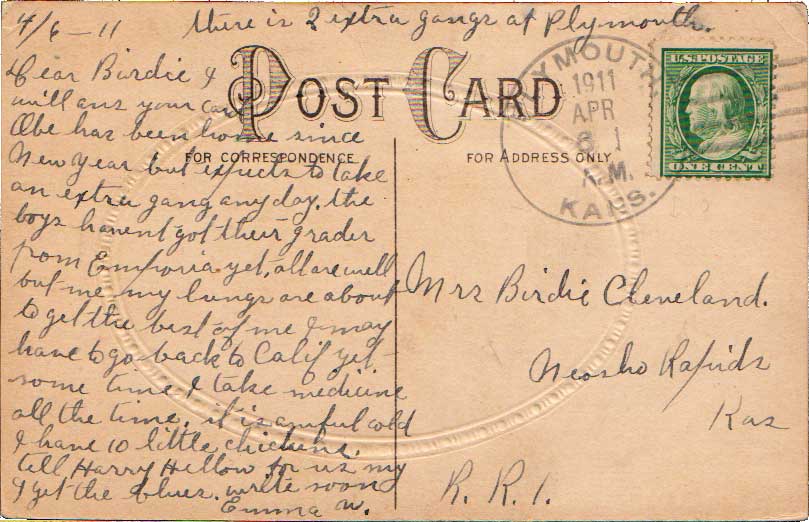 4/6-11 there is 2 extra gangs at Plymouth.
POST CARD
FOR CORRESPONDENCE
FOR ADDRESS ONLY
PLYMOUTH
1911
APR
6
A.M.
KANS.
U.S. POSTAGE
ONE CENT
Dear Birdie I
will ans your card
Abe has been home since
New Year but expects to take
an extra gang any day. the
boys havent got their grader
from Emporia yet, all are well
but me my lungs are about
to get the best of me I may
have to go back to Calif yet
some time I take medicine
all the time. it is awful cold
I have 10 little chickens.
tell Harry Hellow for us my
I get the blues. write soon
Emma W.
Mrs Birdie Cleveland.
Neosho Rapids
Kas
R. R. 1.